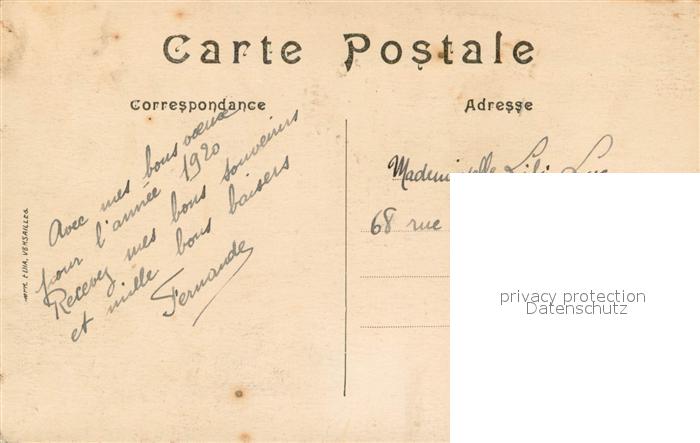 Carte Postale
Correspondance
Adresse
Avec mes bons voeux
pour l'année 1920
Recevez mes bons souvenirs
et mille bons baisers
Fernande
Mademoiselle Lili
68 rue
VERSAILLES
privacy protection
Datenschutz